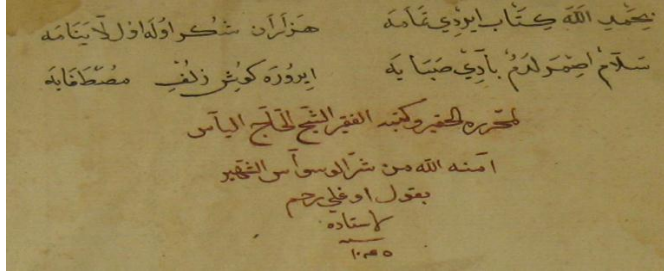 بحمد الله كتاب ايردي تمامه هزاران شكر اوله اول لاينامه
سلام اصمرلدم بادي صبايه ايروره كوش زلف مصطفايه
لمحرره الحقير وكتبه الفقير الشيخ الحاج الياس
امنه الله من شر الوسواس الشهير
بقول اوغلي رحم
لاستاده
سنه